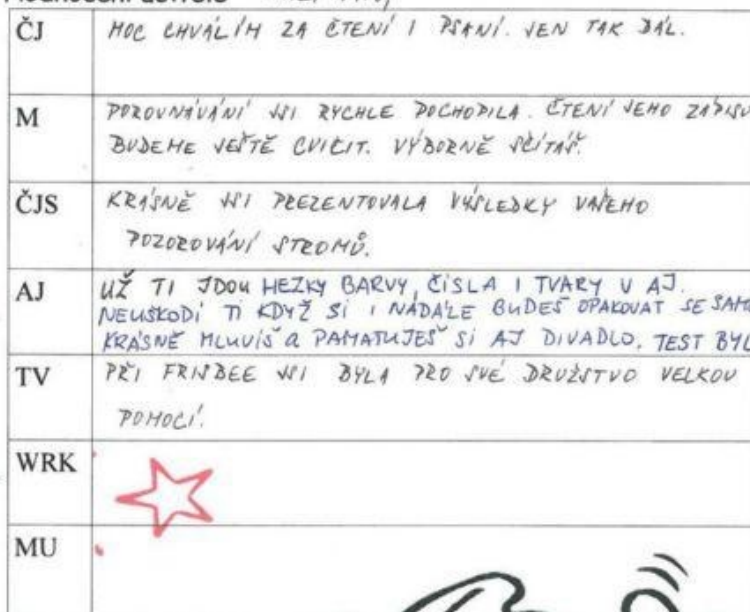 ČJ MOC CHVÁLÍM ZA ČTENÍ I PSANÍ. JEN TAK DÁL.
M POROVNÁVÁNÍ JSI RYCHLE POCHOPILA. ČTENÍ JEHO ZÁPISU
BUDEME JEŠTĚ CVIČIT. VÝBORNĚ SČÍTÁŠ.
ČJS KRÁSNĚ JSI PREZENTOVALA VÝSLEDKY VAŠEHO
POZOROVÁNÍ STROMŮ.
AJ UŽ TI JDOU HEZKY BARVY, ČÍSLA I TVARY V AJ.
NEUŠKODÍ TI KDYŽ SI I NADÁLE BUDEŠ OPAKOVAT SE
KRÁSNĚ MLUVÍŠ A PAMATUJEŠ SI AJ DIVADLO. TEST
TV PŘI FRISBEE JSI BYLA PRO SVÉ DRUŽSTVO VELKOU
POMOCÍ.
WRK
MU